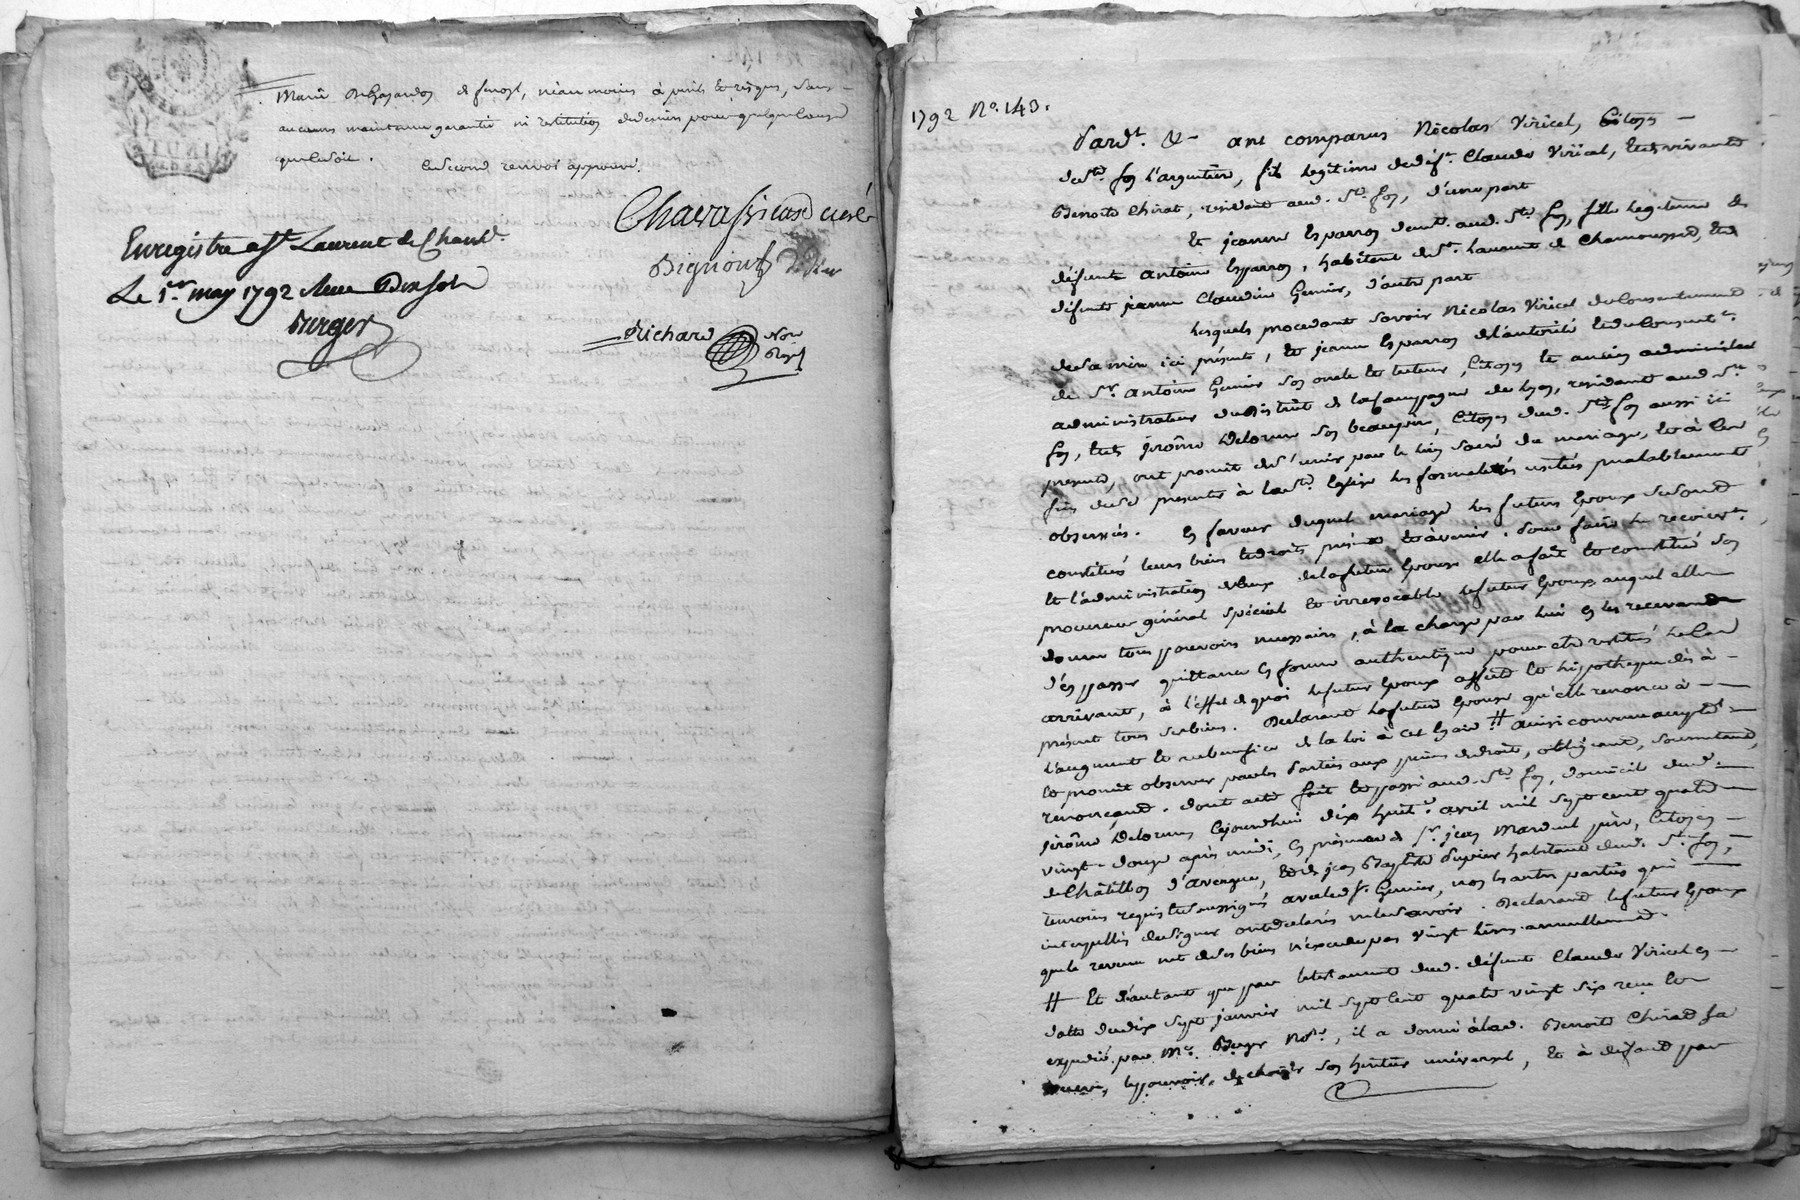 Marie Delhayandos de feno[yl], néanmoins à périls et risques, sans
aucune maintenue garantie ni restitution de deniers pour quelque cause
que ce soit. Ce second renvoi approuvé.
Chavassieux curé
Bignon
Enregistré à St Laurent de Cham.t
Le 1.er may 1792
Berger
Richard Not.re Roy.l
1792 N.o 143.
Pard.t &c ont comparus Nicolas Viricel, Citoyen
de S.te foy l'argentière, fils légitime de déf.t Claude Viricel, et de vivante
Benoite Chirat, résidant aud. S.te foy, d'une part
Et jeanne Esparron demt. aud. S.te foy, fille légitime de
défunt antoine Esparron, habitant de S.t Laurent de Chamousset, et de
défunte jeanne Claudine Genier, d'autre part
Lesquels procédant savoir Nicolas Viricel du Consentement
de sa mère ici présente, et jeanne Esparron de l'autorité et du Consent.t
de S.r antoine Genier son oncle et tuteur, Citoyen et ancien administrat
administrateur du district de la Campagne de Lyon, résidant aud. S.te
foy, et de jérôme Delorme son beaupère, Citoyen dud. S.te foy aussi ici
présent, ont promit de s'unir par le lien sacré du mariage, et à Ces
fins de se présenter à la S.te Eglise les formalités usitées préalablement
observées. En faveur duquel mariage les futurs Epoux se sont
constitués leurs biens et droits présents et à venir, pour faire le recouvre.t
Et l'administration de Ceux de la future Epouse elle a fait et constitué son
procureur général spécial et irrévocable le futur Epoux auquel elle
donne tous pouvoirs nécessaires, à la charge par lui en les recevant
d'en passer quittance en forme authentique pour etre restitués le Cas
arrivant, à l'effet de quoi le futur Epoux affecte et hippothèque dès à
présent tous ses biens. Déclarant la future Epouse qu'elle renonce à
l'augment et au bénéfice de la loi à cet égard # ainsi convenu accepté
et promit observer par les Parties aux peines de droit, obligeant, soumettant,
renonçant. dont acte fait et passé aud. S.te foy, domicile dud.
jérôme Delorme Cejourdhui dix huit.e avril mil sept cent quatre
vingt-douze après midi, En présence de S.r jean Mardeuil père, Citoyen
de Châtillon d'avergue, et de jean Baptiste Dupier habitant dud. S.te foy,
témoins requis et soussignés avec led S.r Genier, non les autres parties qui
interpellées de signer ont déclarés ne le savoir. Déclarant le futur Epoux
que le revenu net de ses biens n'excede pas vingt livres annuellement.
# Et d'autant que par le testament dud. défunt Claude Viricel en
datte du dix sept janvier mil sept Cent quatre vingt six reçu et
expédié par M.e Berger No.re, il a donné à lad. Benoite Chirat sa
veuve, le pouvoir de choisir son héritier universel, Et à défaut par